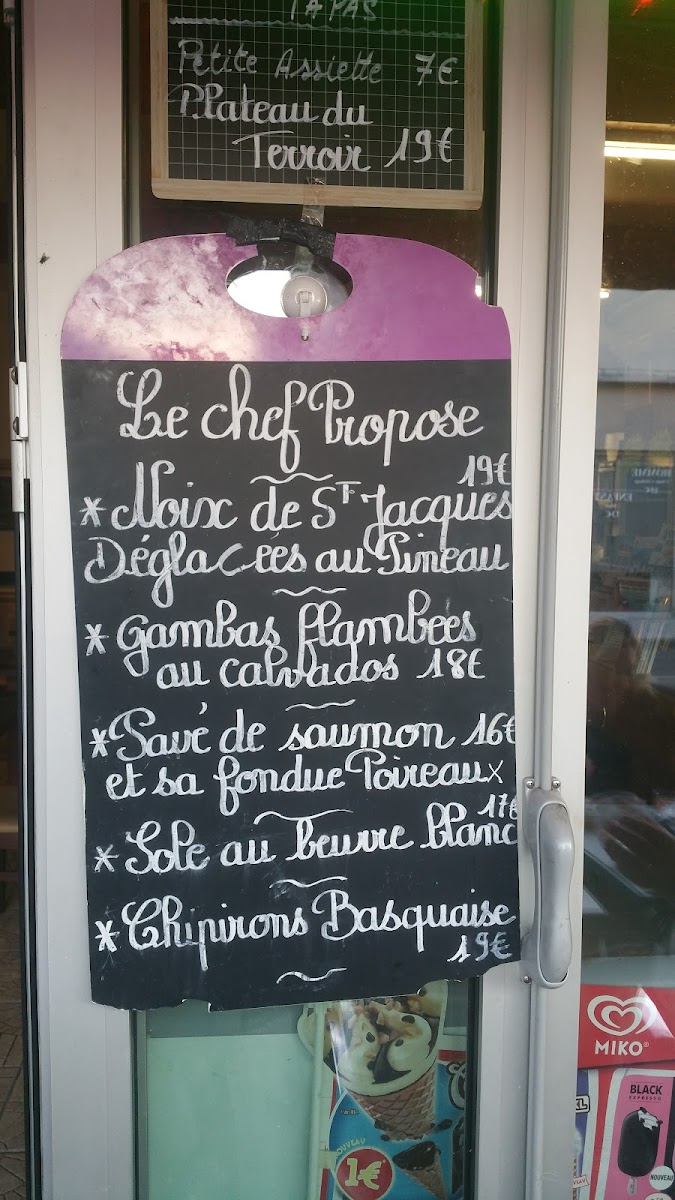 TAPAS
Petite Assiette 7€
Plateau du
Terroir 19€
Le chef Propose
19€
* Noix de ST Jacques
Déglacées au Pineau
* Gambas flambées
au calvados 18€
* Pavé de saumon 16€
et sa fondue Poireaux
17€
* Sole au beurre blanc
* Chipirons Basquaise
19€
HOMME
ENFANT
MIKO
BLACK
ESPRESSO
NOUVEAU
NOUVEAU
1€